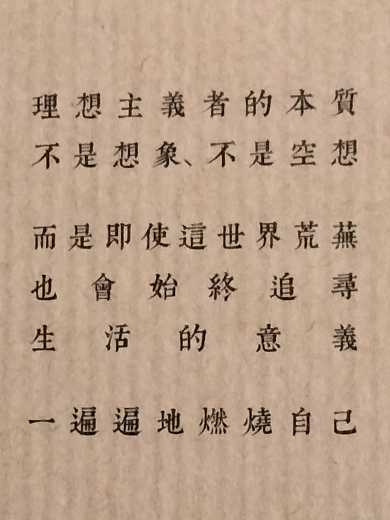 理想主義者的本質
不是想象、不是空想
而是即使這世界荒蕪
也會始終追尋
生活的意義
一遍遍地燃燒自己